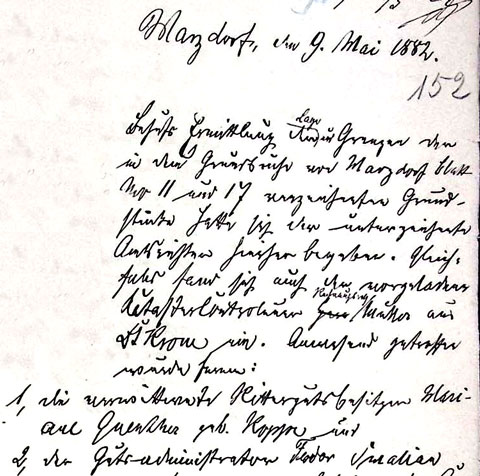 Marzdorf, den 9. Mai 1882.
152
Behufs Ermittlung der Lage und Grenzen der
in dem Grundbuche von Marzdorf Blatt
Nro 11 und 17 verzeichneten Grund-
stücke hatte sich der unterzeichnete
Amtsrichter hierher begeben. Gleich-
falls fand sich auch der vorgeladene
Katasterkontroleur Müller aus
Dt Krone ein. Anwesend getroffen
wurde ferner:
1, die verwittwete Rittergutsbesitzer Mari-
ane Guenther geb. Koppe und
2, der Guts-administrator Fedor